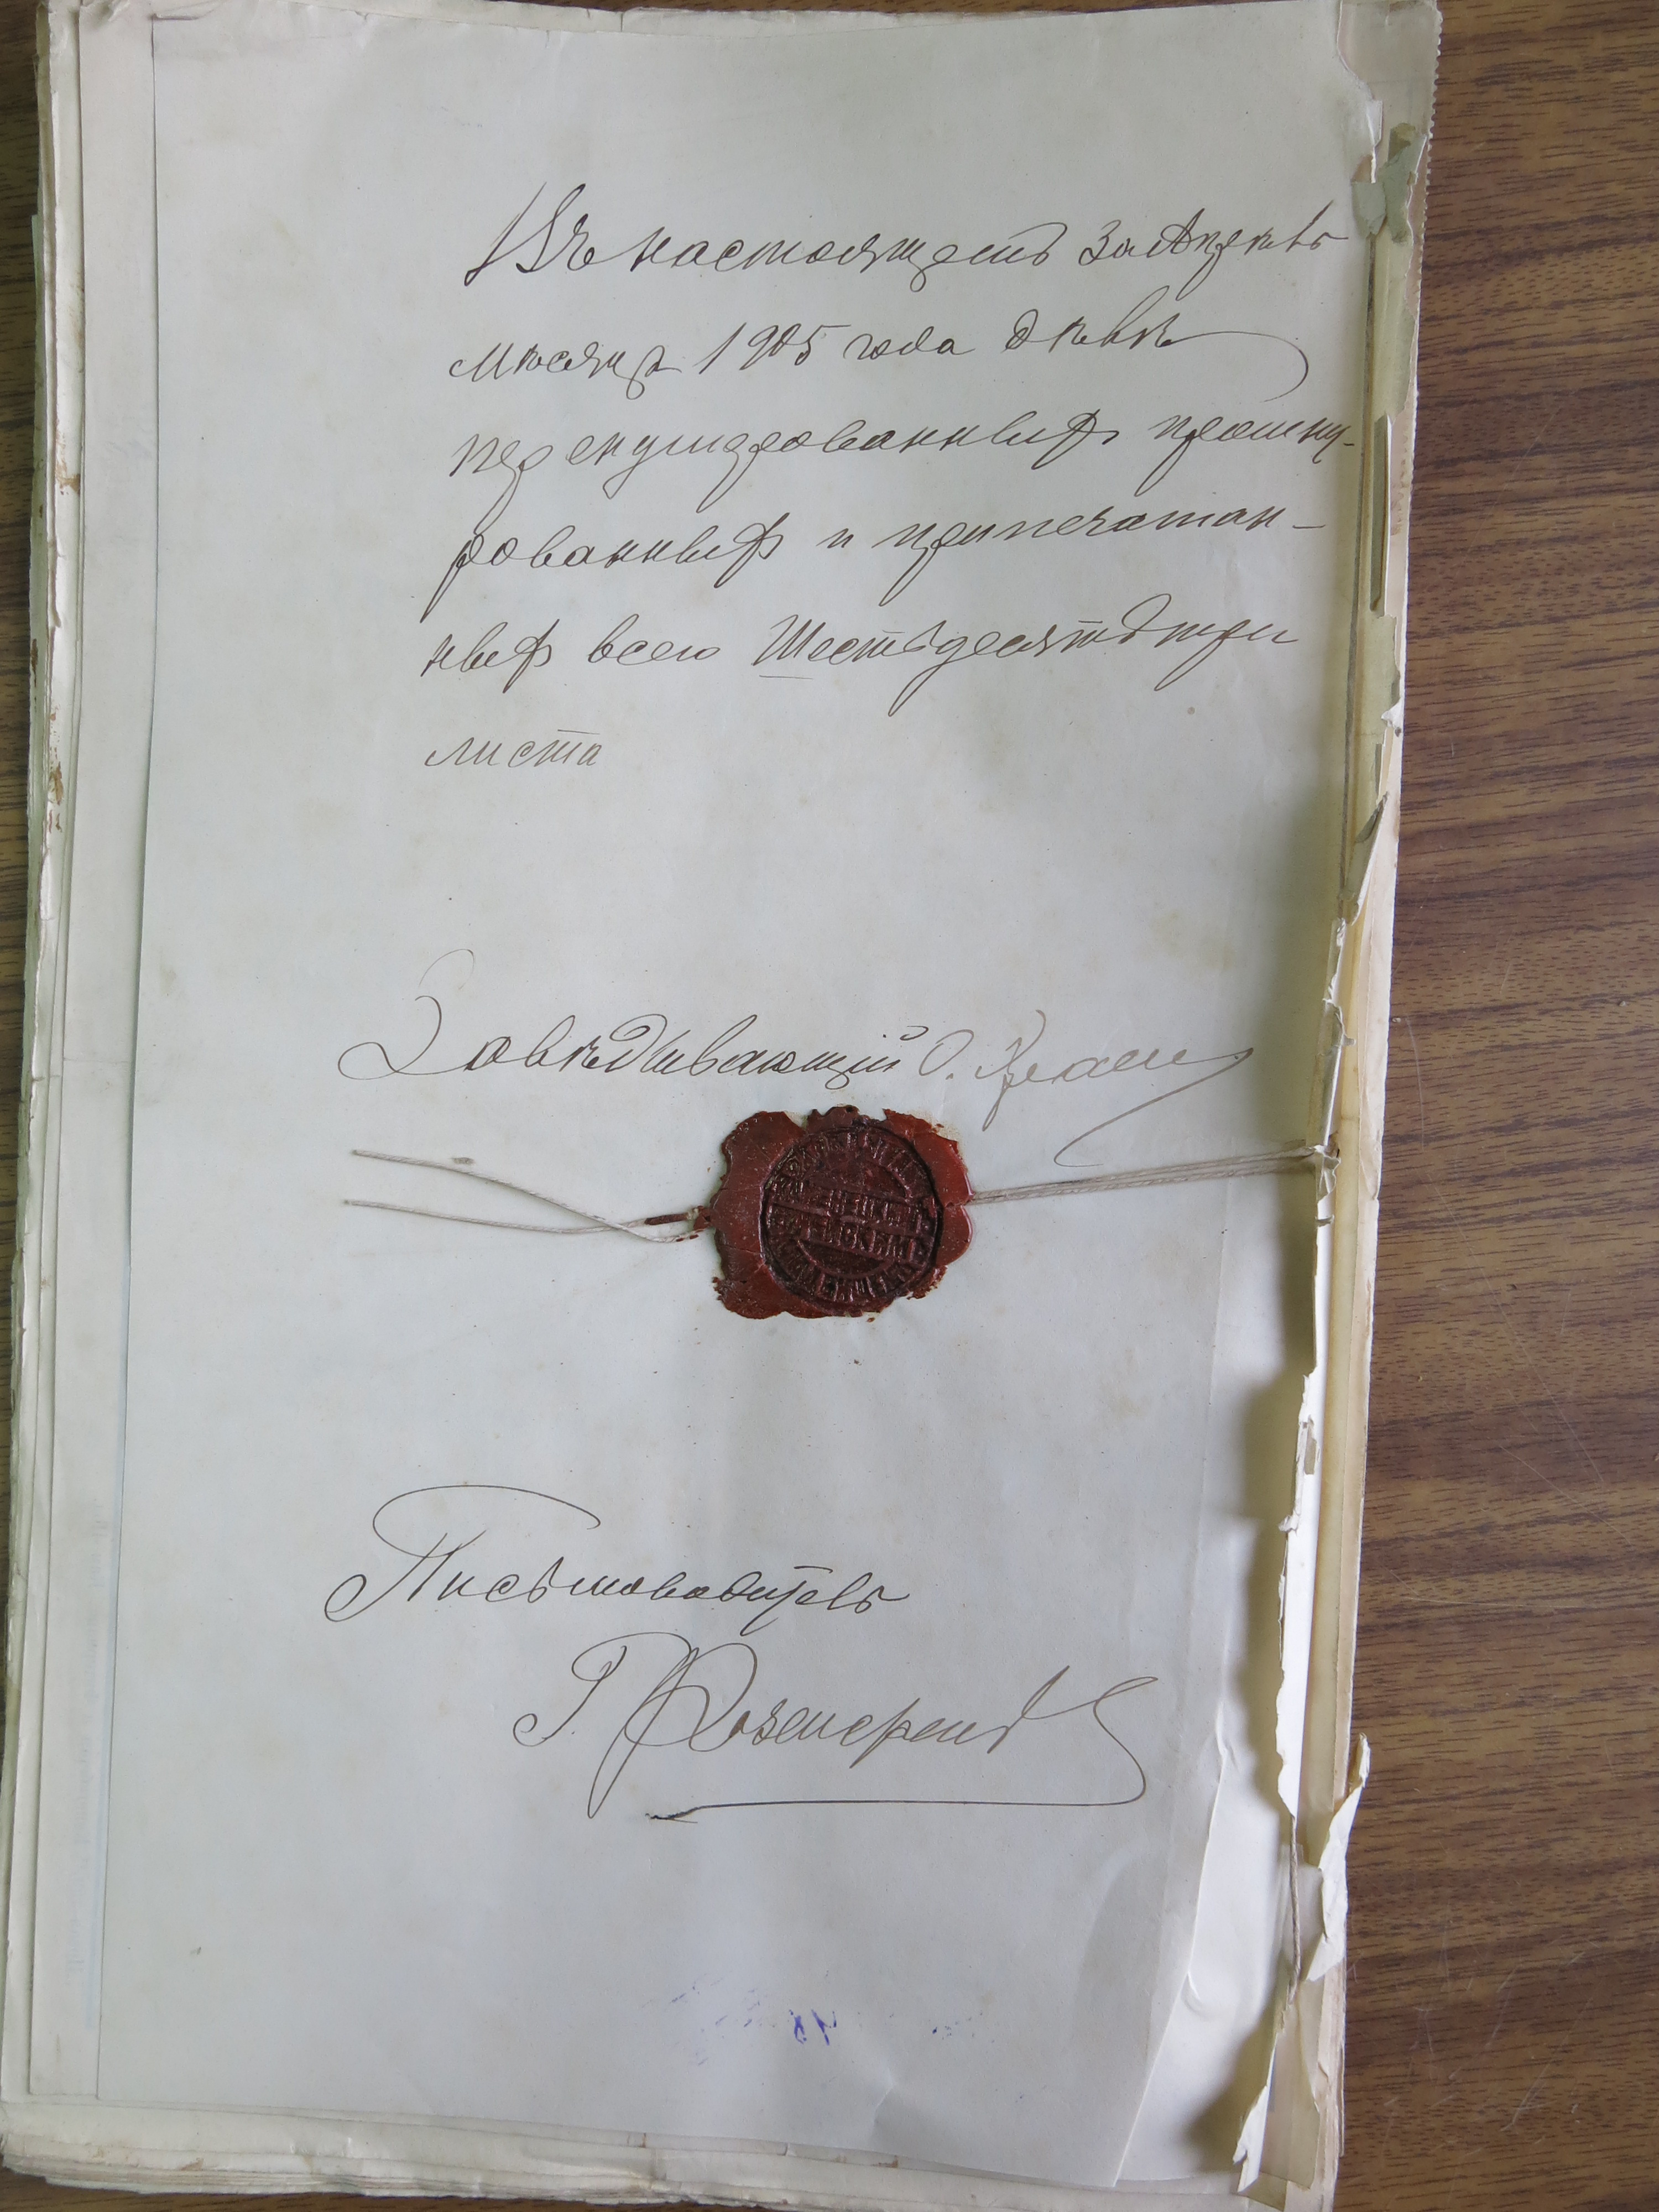 Въ настоящемъ за Апрель
месяцъ 1905 года дѣлѣ
перенумерованныхъ прошну-
рованныхъ и припечатан-
ныхъ всего Шестьдесятъ три
листа
Завѣдывающій О.
Письмоводитель
Г.